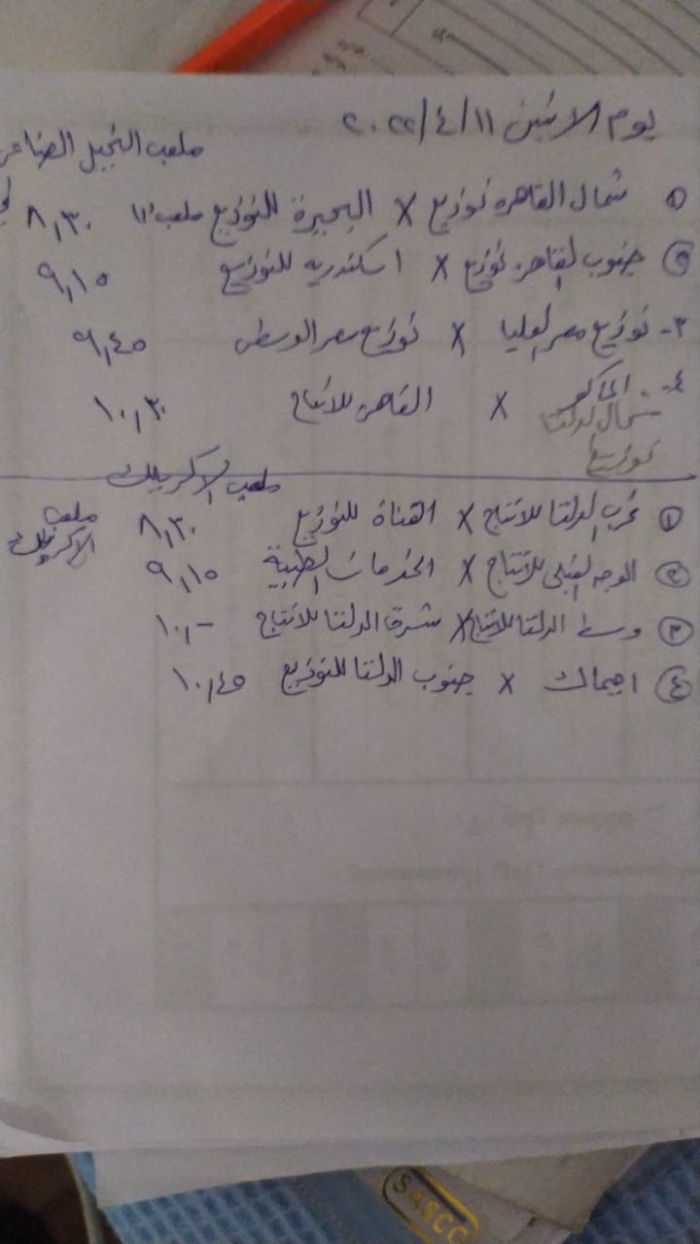 يوم الاثنين ٢٠٢٢/٤/١١
ملعب النجيل الصناعى
① شمال القاهرة توزيع X البحيرة للتوزيع ملعب ٨,٣٠
② جنوب القاهرة توزيع X اسكندرية للتوزيع ٩,١٥
٣- توزيع مصر العليا X توزيع مصر الوسطى ٩,٤٥
٤- X القاهرة للانتاج ١٠,٣٠
شمال الدلتا
توزيع
ملعب الاكريلك
① غرب الدلتا للانتاج X القناة للتوزيع ٨,٣٠ ملعب الاكريلك
② الوجه القبلى للانتاج X الخدمات الطبية ٩,١٥
③ وسط الدلتا للانتاج X شرق الدلتا للانتاج ١٠,-
④ X جنوب الدلتا للتوزيع ١٠,٤٥
SASCC